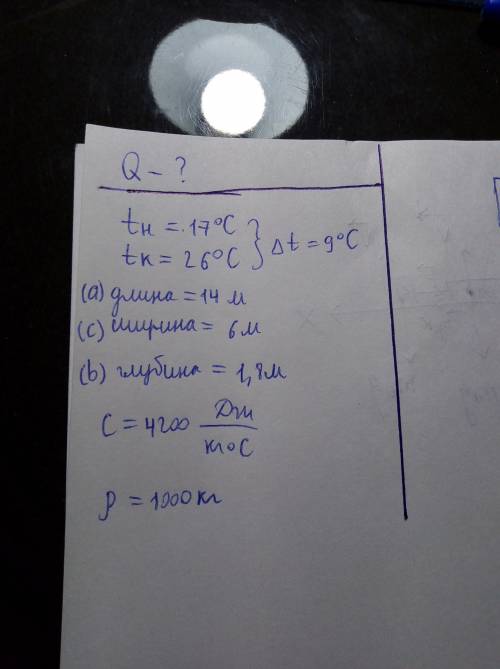 Q - ?
tн = 17°C
tк = 26°C } Δt = 9°C
(a) длина = 14 м
(c) ширина = 6 м
(b) глубина = 1,8м
C = 4200 Дж/кг°C
ρ = 1000 кг